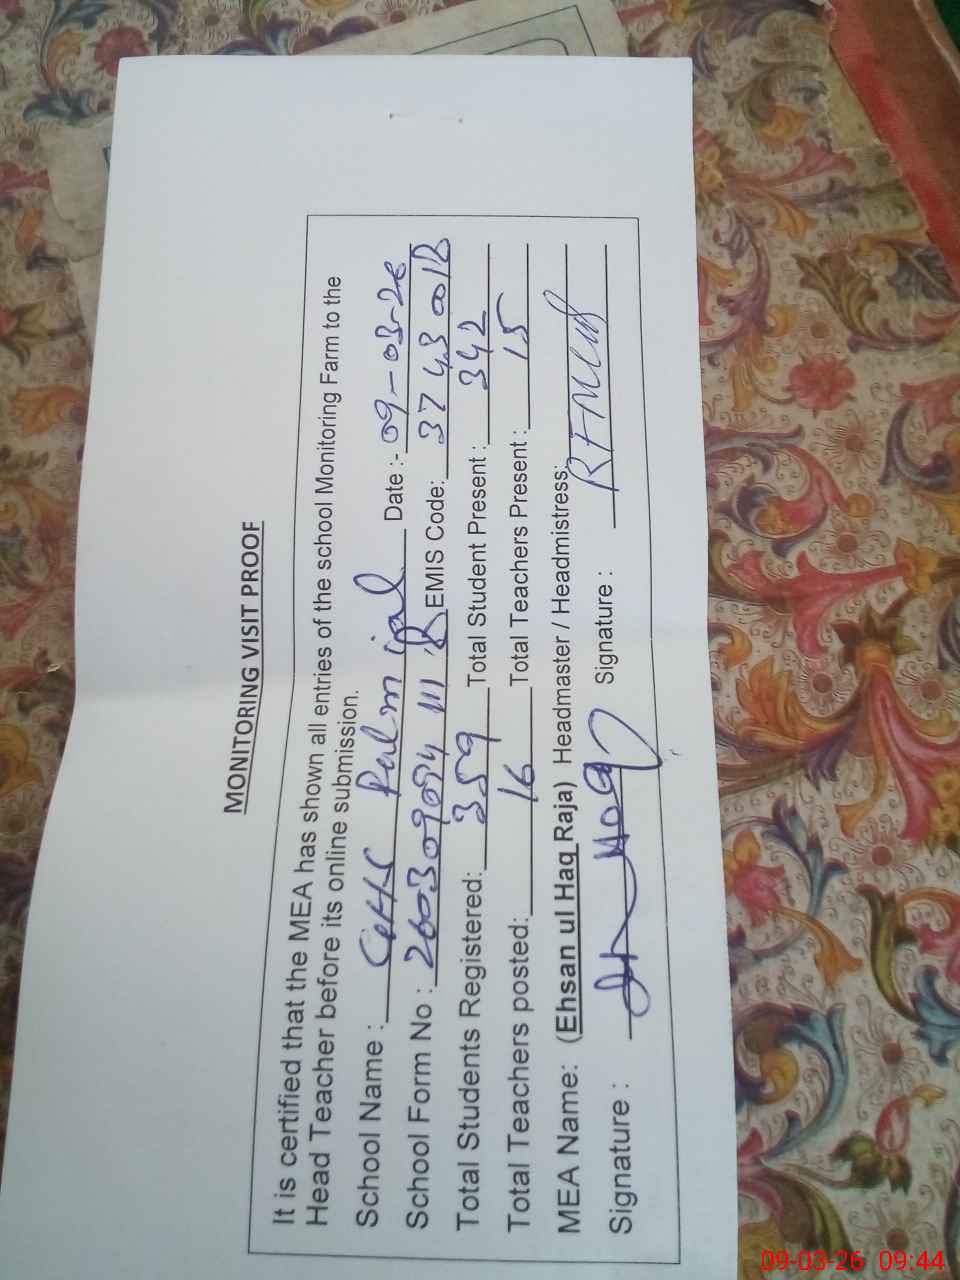 MONITORING VISIT PROOF
It is certified that the MEA has shown all entries of the school Monitoring Farm to the
Head Teacher before its online submission.
School Name : GHS Date :- 09-03-26
School Form No : EMIS Code: 37430018
Total Students Registered: 359 Total Student Present : 342
Total Teachers posted: 16 Total Teachers Present : 15
MEA Name: (Ehsan ul Haq Raja) Headmaster / Headmistress:
Signature : Signature :
09-03-26 09:44